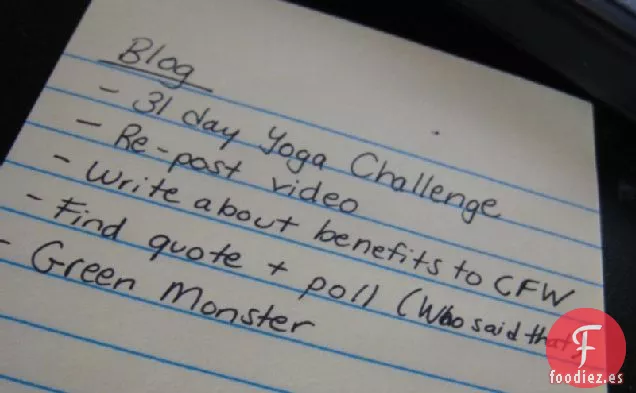 Blog
- 31 day Yoga Challenge
- Re-post video
- Write about benefits to CFW
- Find quote + poll (Who said that
- Green Monster
F
foodiez.es